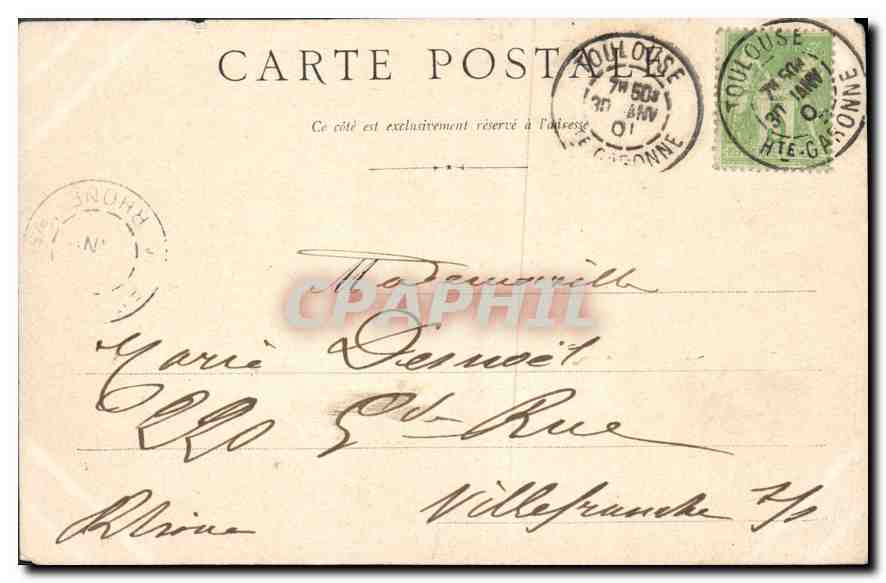 CARTE POSTALE
TOULOUSE
7H 50S
30 JANV
01
HTE-GARONNE
TOULOUSE
7H 50S
30 JANV
HTE-GARONNE
Ce côté est exclusivement réservé à l'adresse
RHONE
CPAPHIL
Mademoiselle
Marie Desnoël
220 Gde Rue
Villefranche s/s
Rhône